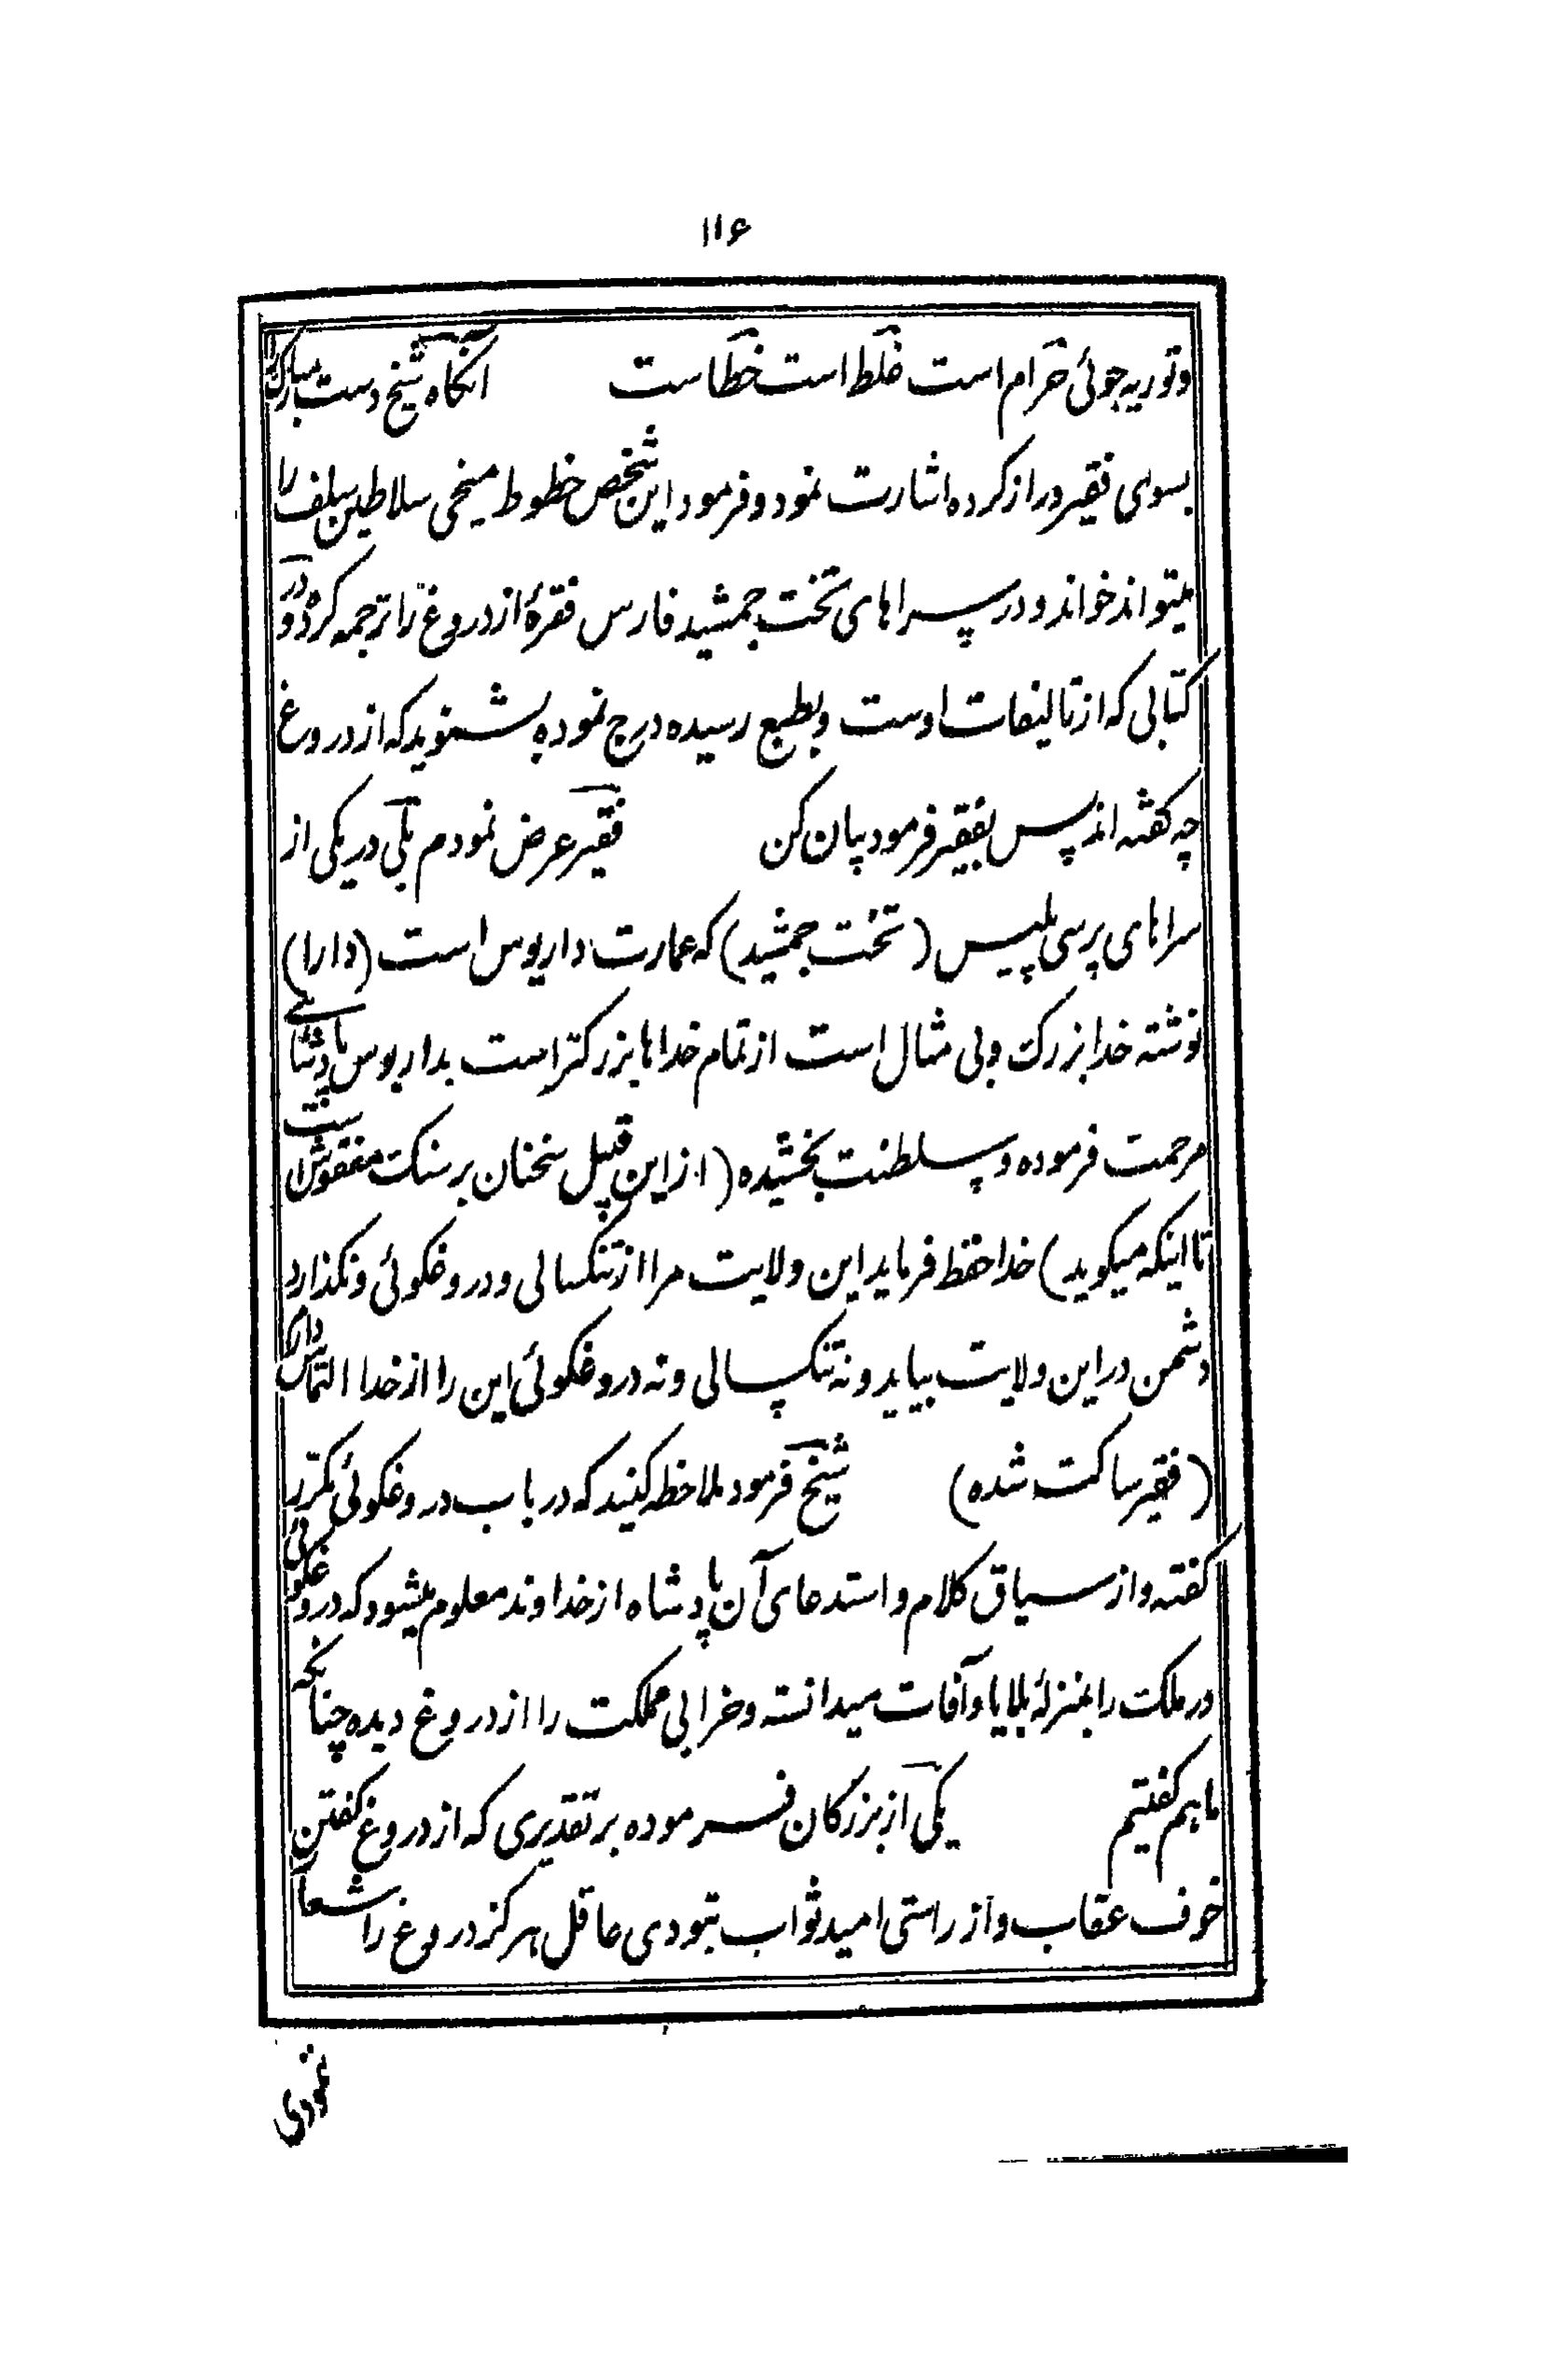 ۱۱۶
و توریه جوئی حرام است غلط است خطاست آنکاه شیخ دست مبارک را
بسوی فقیر دراز کرده اشارت نمود و فرمود این شخص خطوط میخی سلاطین سلف را
میتواند خواند و در سراهای تخت جمشید فارس فقرهٔ از دروغ را ترجمه کرده و در
کتابی که از تالیفات اوست و بطبع رسیده درج نموده بشنوید که از دروغ
چه کفته اند پس بفقیر فرمود بیان کن فقیر عرض نمودم بلی در یکی از
سراهای پرسی پلیس (تخت جمشید) که عمارت داریوس است (دارا)
نوشته خدا بزرک و بی مثال است از تمام خداها بزرکتر است بداریوس پادشاهی
مرحمت فرموده و سلطنت بخشیده (از این قبیل سخنان بر سنک منقوش است
تا اینکه میکوید) خدا حفظ فرماید این ولایت مرا از تنکسالی و دروغکوئی و نکذارد
دشمن در این ولایت بیاید و نه تنکسالی و نه دروغکوئی این را از خدا التماس دارم
(فقیر ساکت شده) شیخ فرمود ملاحظه کنید که در باب دروغکوئی مکرّر
کفته و از سیاق کلام و استدعای آن پادشاه از خداوند معلوم میشود که دروغکوئی
در ملکت را بمنزلهٔ بلایا و آفات میدانسته و خرابی مملکت را از دروغ دیده چنانچه
ما هم کفتیم یکی از بزرکان فرموده بر تقدیری که از دروغ کفتن
خوف عقاب و از راستی امید ثواب نبودی عاقل هرکز دروغ را شعار
نمودی